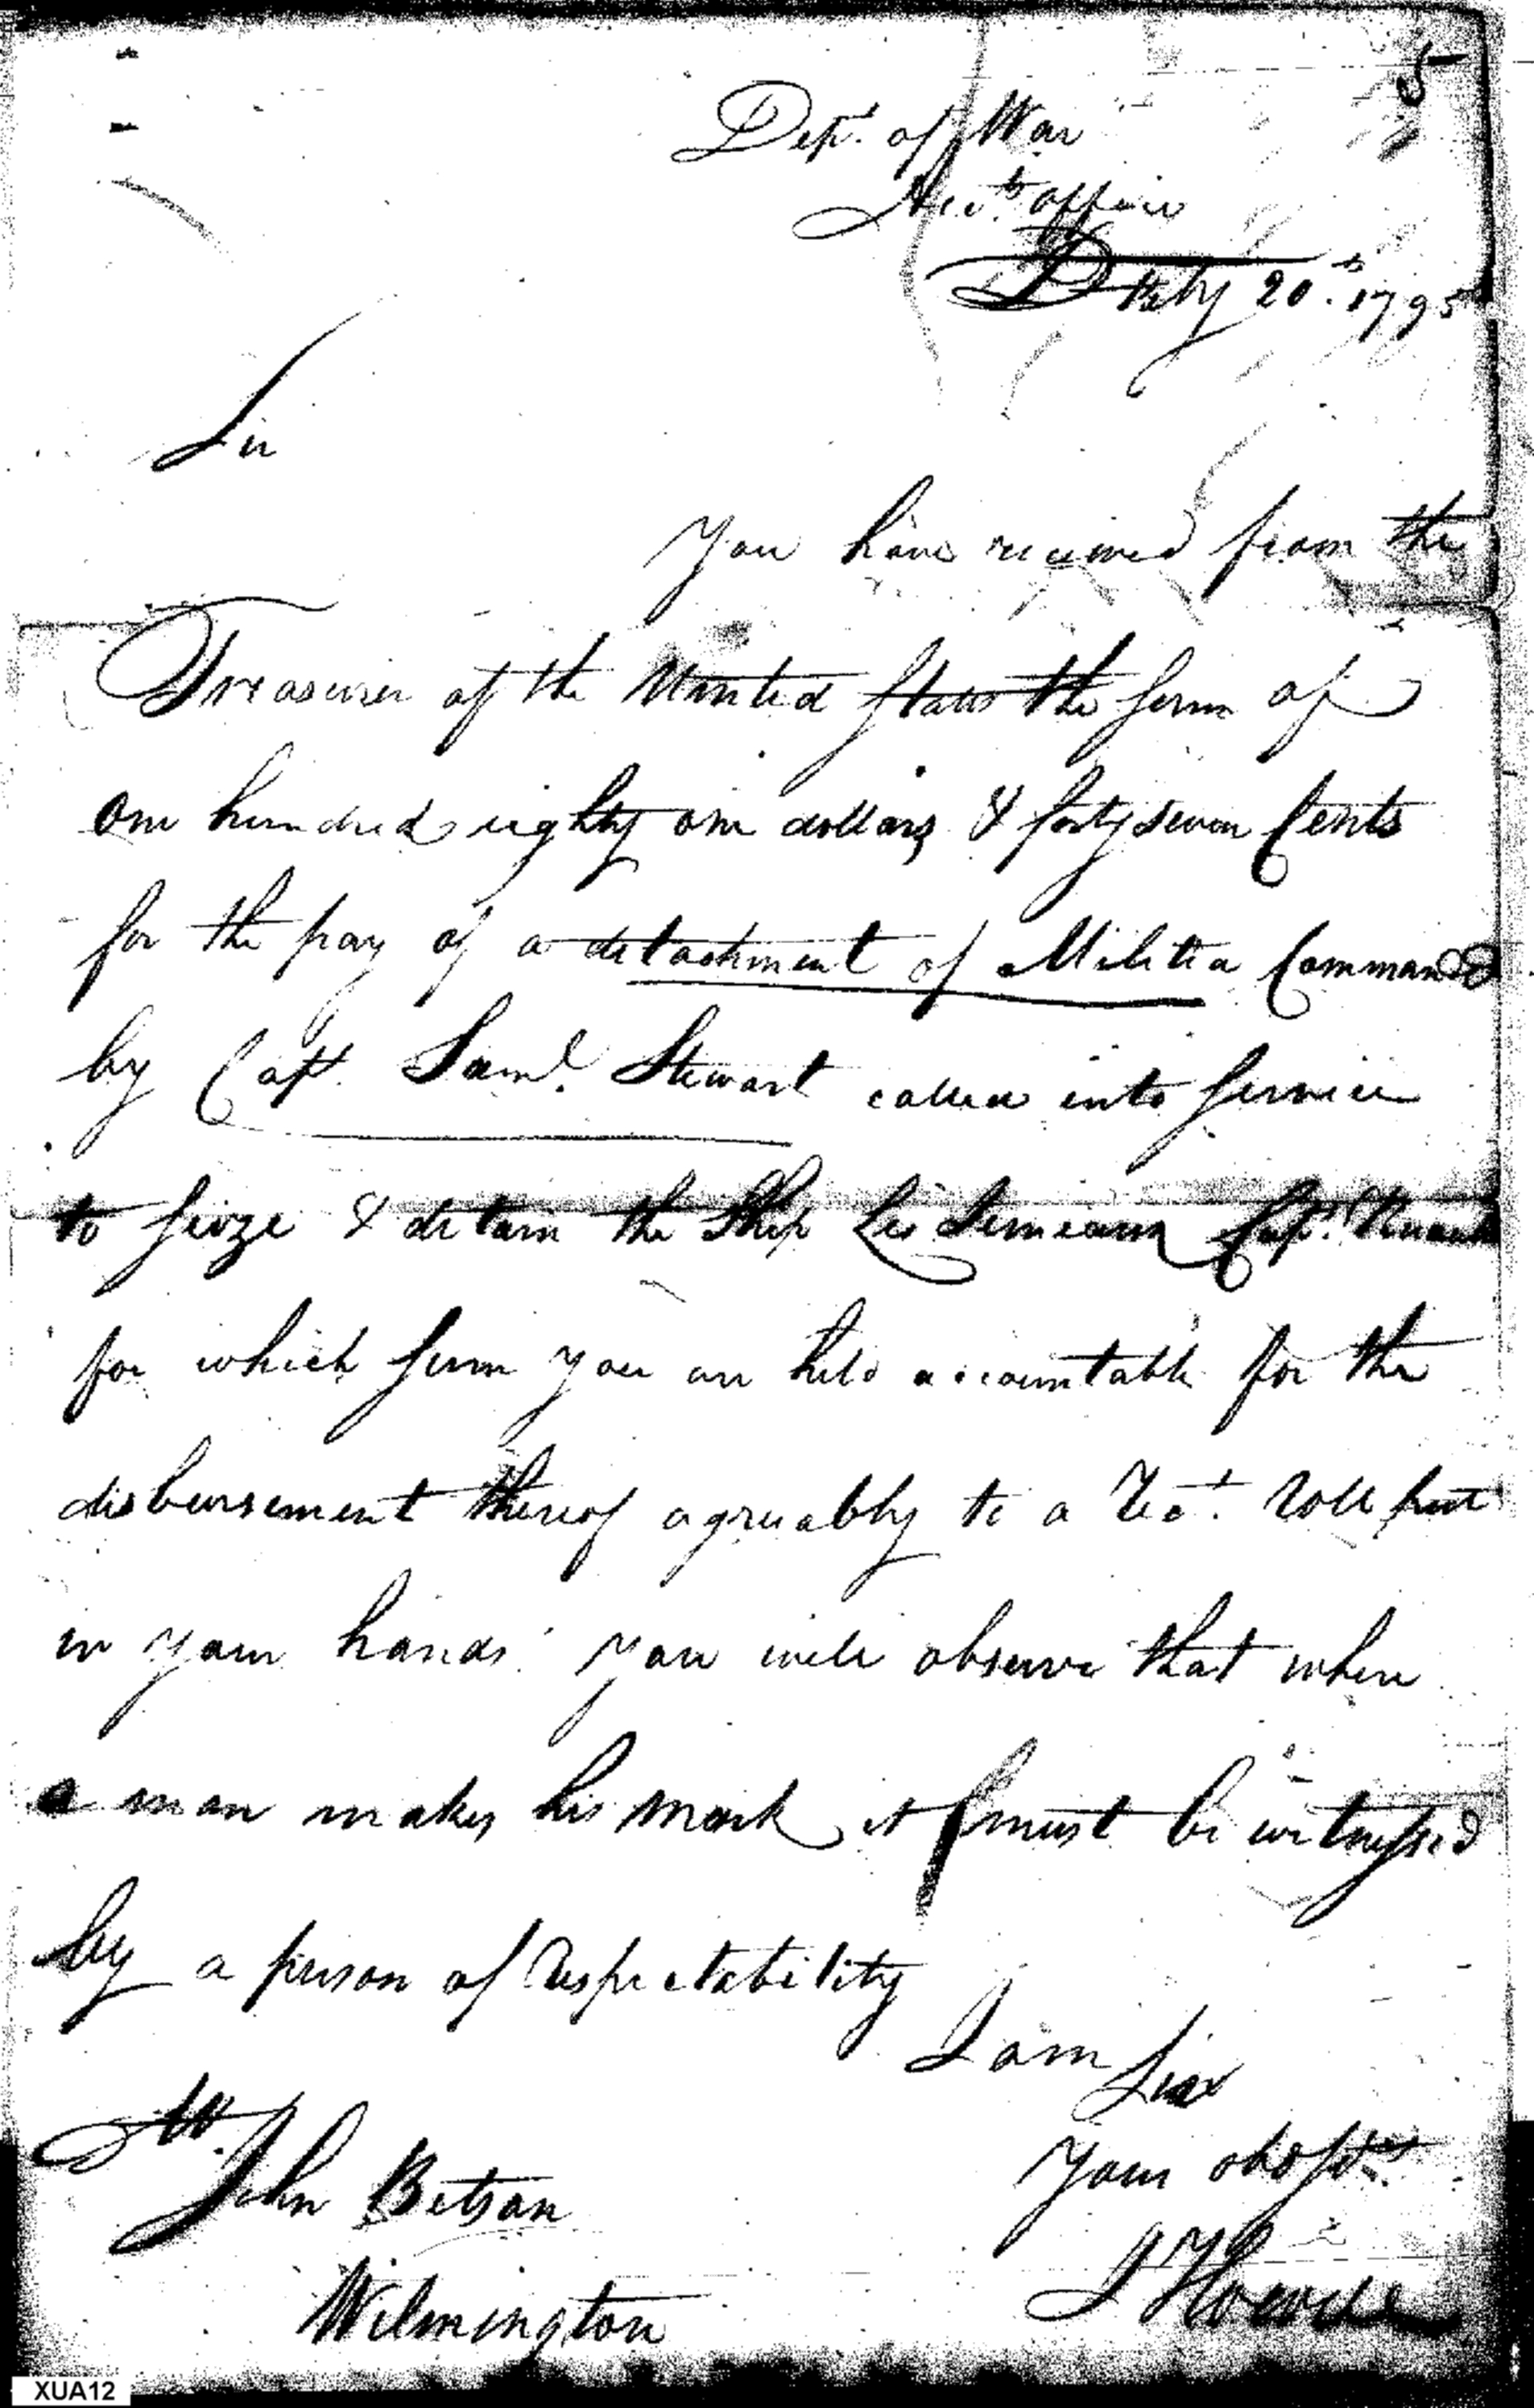 5
Dept. of War
Acctts office
Feby 20th. 1795
Sir
You have received from the
Treasurer of the United States the sum of
one hundred eighty one dollars & forty seven Cents
for the pay of a detachment of Militia Commandd
by Capt. Saml. Stewart called into service
to seize & detain the Ship Les Jumeaux Capt.
for which sum you are held accountable for the
disbursement thereof agreeably to a Rect. Roll put
in your hands. you will observe that where
a man makes his mark it must be witnessed
by a person of respectability
I am Sir
Your obdt Sert
Mr.
John Betson
J Howell
Wilmington
XUA12